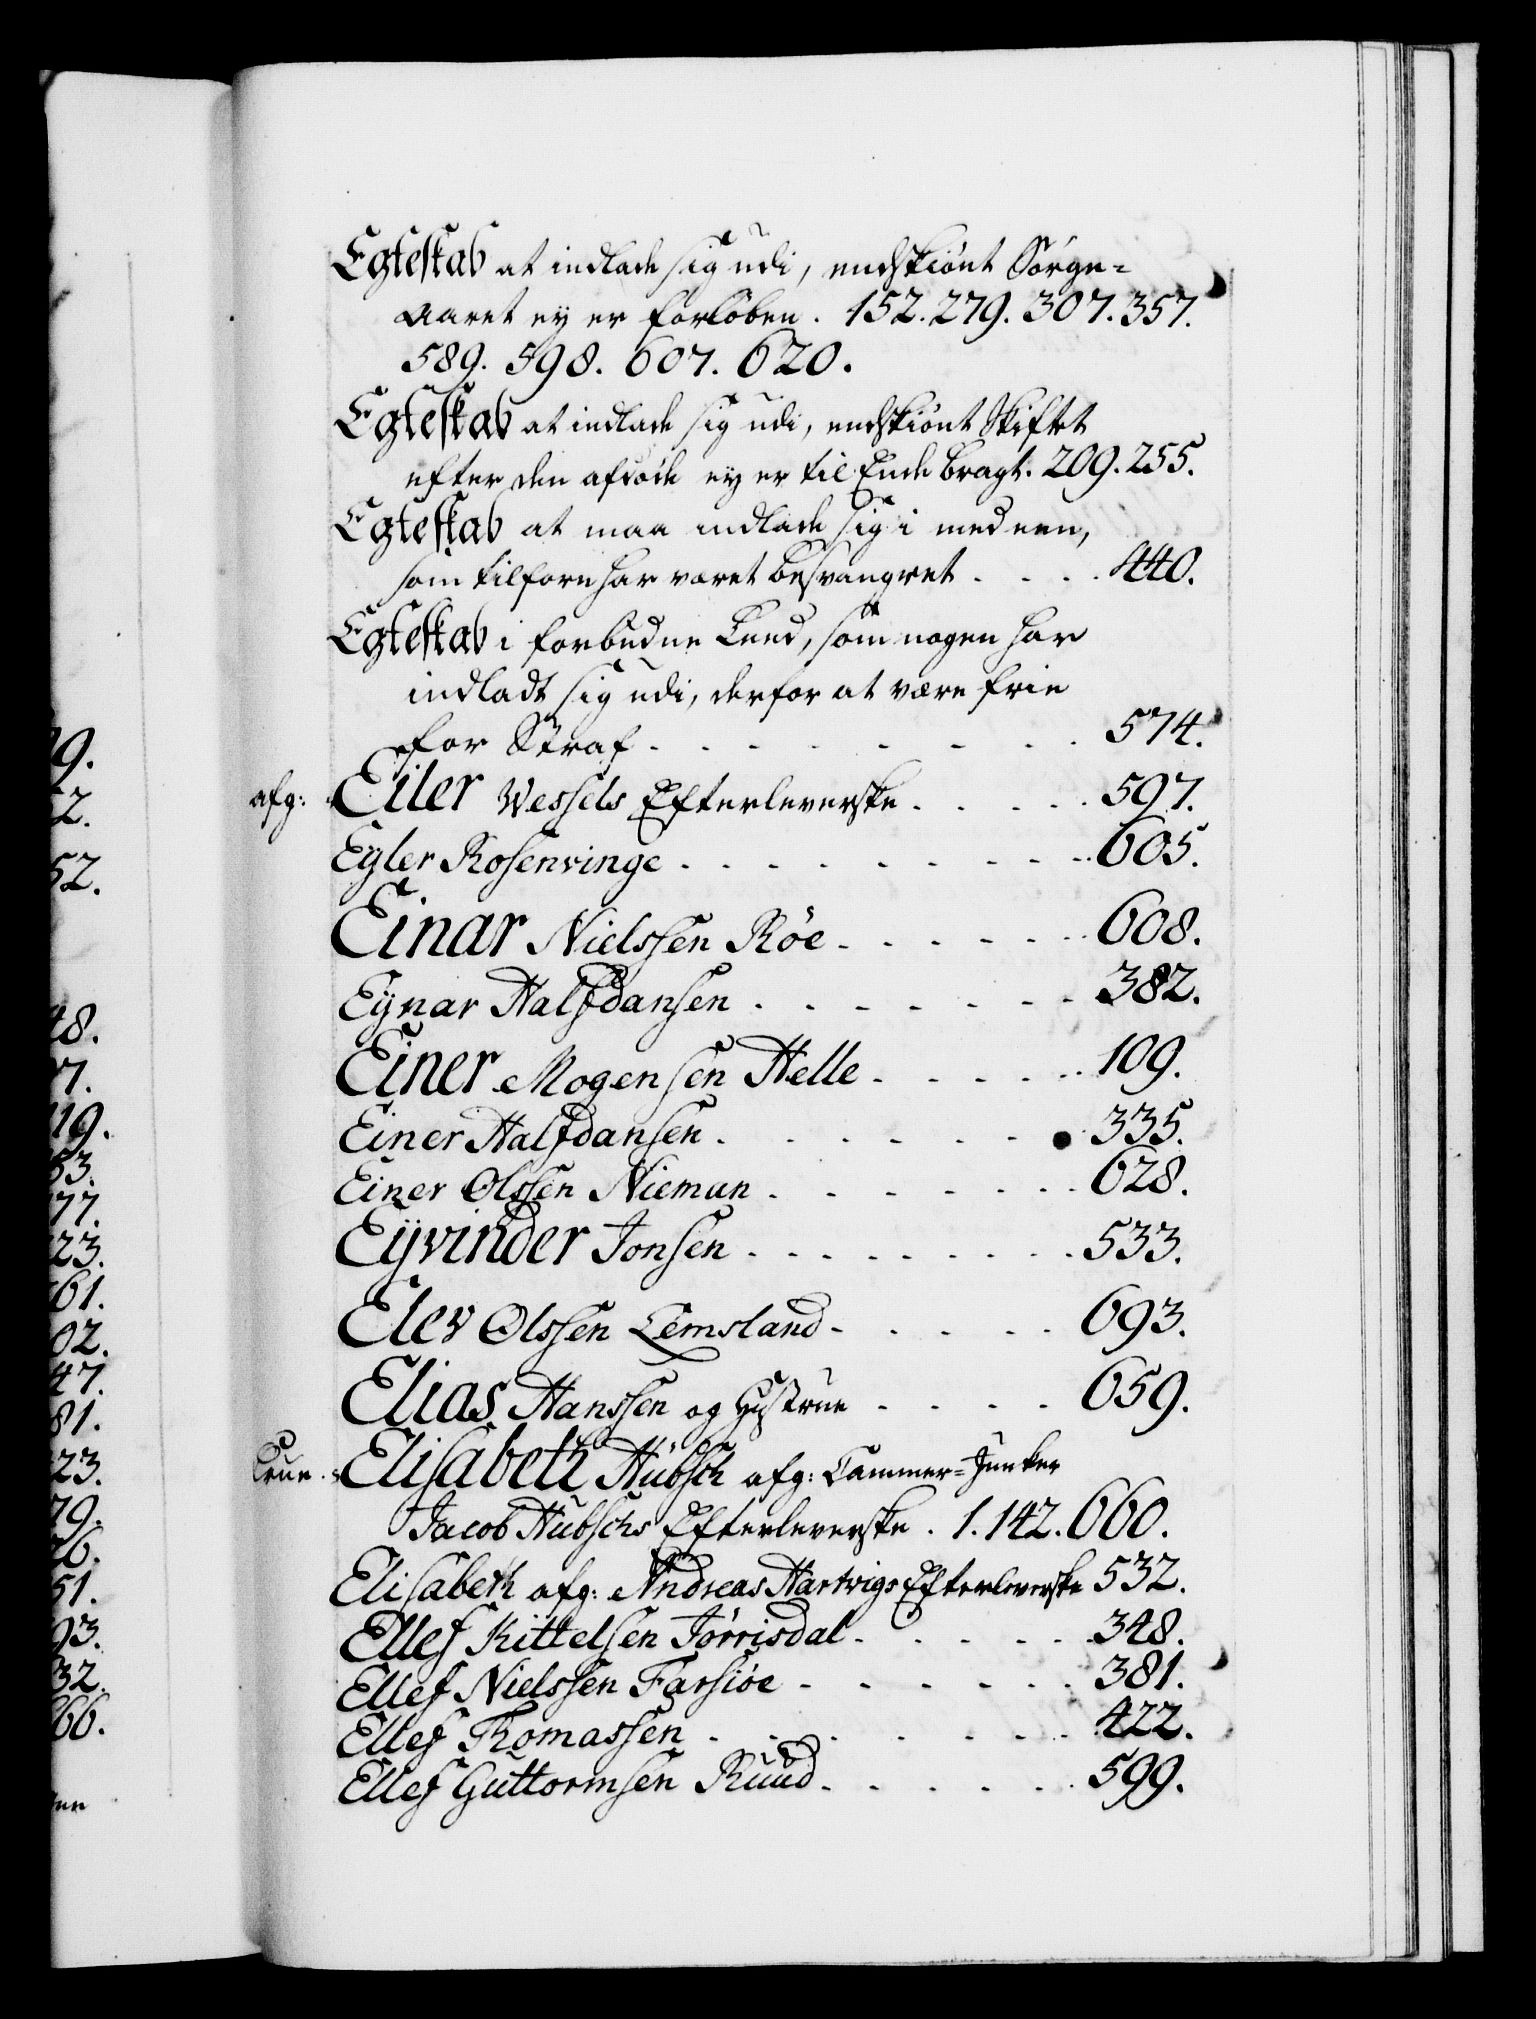 Egteskab at indlade sig udi, endskiønt Sørge-
Aaret ey er forløben. 152. 279. 307. 357.
589. 598. 607. 620.
Egteskab at indlade sig udi, endskiønt Skiftet
efter den afdøde ey er til Ende bragt. 209. 255.
Egteskab at maa indlade sig i med een,
som tilforn har været besvangret . . . . 440.
Egteskab i forbudne Leed, som nogen har
indladt sig udi, derfor at være frie
for Straf . . . . . . . . 574.
afg: Eiler Wessels Efterleverske . . . . 597.
Eyler Rosenvinge . . . . . . . . 605.
Einar Nielssen Røe . . . . . . 608.
Eynar Halfdansen . . . . . . . 382.
Einer Mogensen Helle . . . . . 109.
Einer Halfdansen . . . . . . . 335.
Einer Olssen Nieman . . . . . . . 628.
Eyvinder Jonsen . . . . . . . . 533.
Elev Olssen Lemsland . . . . . 693.
Elias Hanssen og Hustrue . . . . 659.
Frue Elisabeth Hübsch afg: Cammer-Junker
Jacob Hübschs Efterleverske . 1. 142. 660.
Elisabeth afg: Andreas Hartvigs Efterleverske 532.
Ellef Kittelsen Tørrisdal . . . . . 348.
Ellef Nielssen Farsiøe . . . . . . 381.
Ellef Thomassen . . . . . . . . 422.
Ellef Guttormsen Ruud . . . . . . 599.
52.
19.
23.
61.
02.
47.
81.
23.
79.
51.
93.
32.
66.